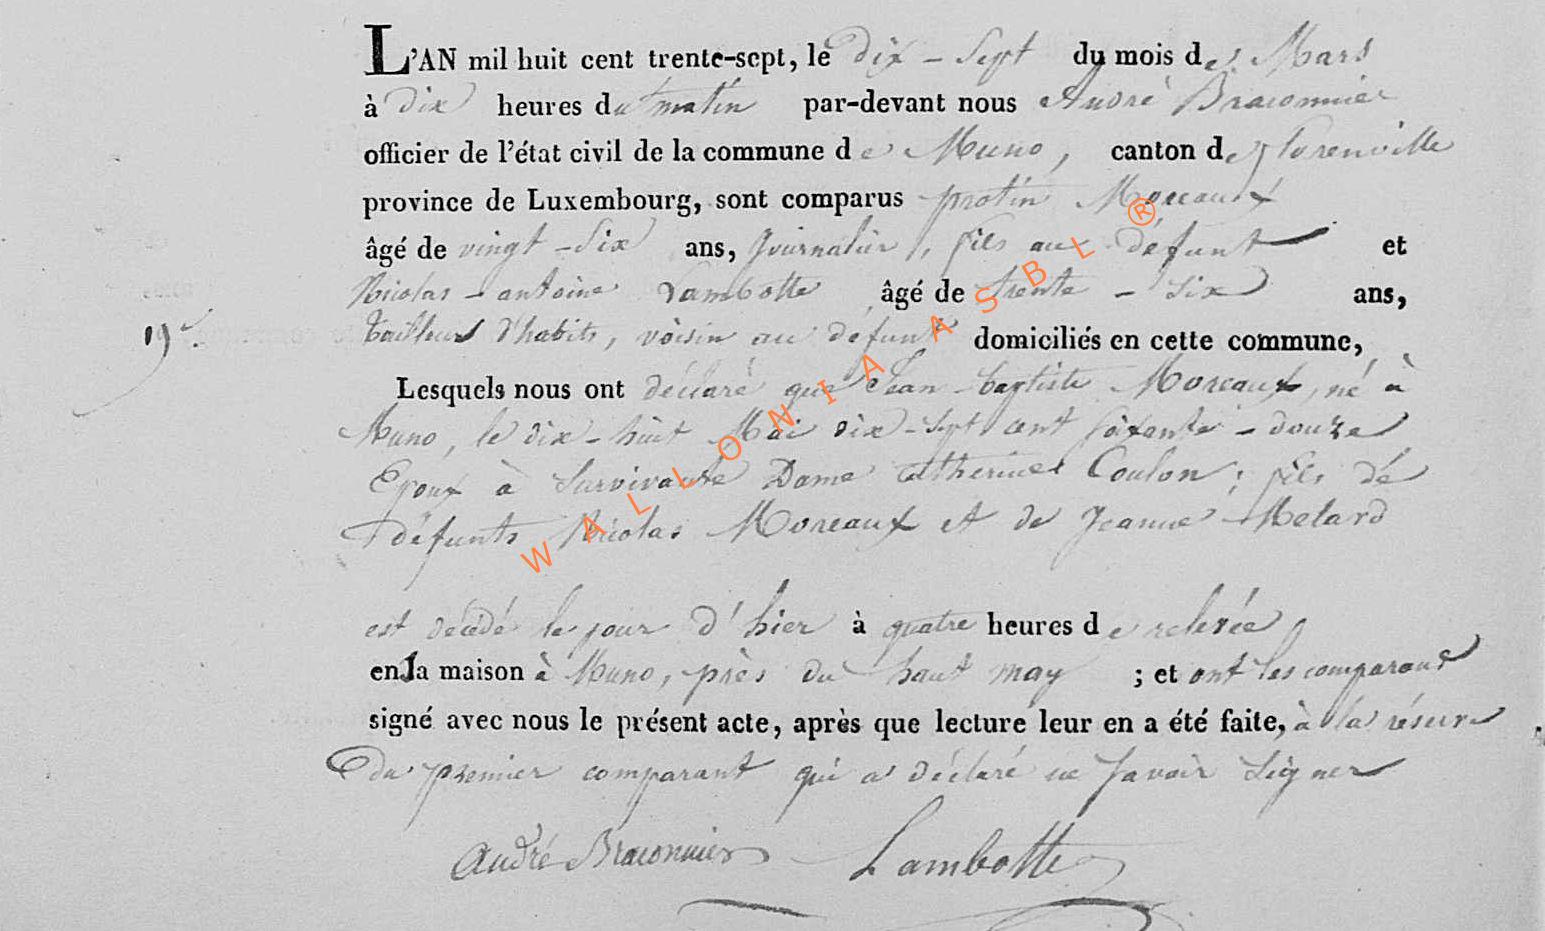 L'AN mil huit cent trente-sept, le dix-sept du mois de Mars
à dix heures du matin par-devant nous André Braconnier
officier de l'état civil de la commune de Muno, canton de florenville
province de Luxembourg, sont comparus protin Moreaux
âgé de vingt-six ans, Journalier, fils au défunt et
Nicolas-antoine Lambotte âgé de trente-six ans,
19e. tailleur d'habits, voisin au défunt domiciliés en cette commune,
Lesquels nous ont déclaré que Jean-baptiste Moreaux, né à
Muno, le dix-huit Mai dix-sept cent soixante-douze
Epoux à Survivante Dame Catherine Coulon; fils dé
défunts Nicolas Moreaux et de Jeanne Metard
est décédé le jour d'hier à quatre heures de relevée,
en la maison à Muno, près du haut may ; et ont les comparans
signé avec nous le présent acte, après que lecture leur en a été faite, à la réserve
du premier comparant qui a déclaré ne savoir signer
André Braconnier Lambotte
WALLONIA ASBL ®